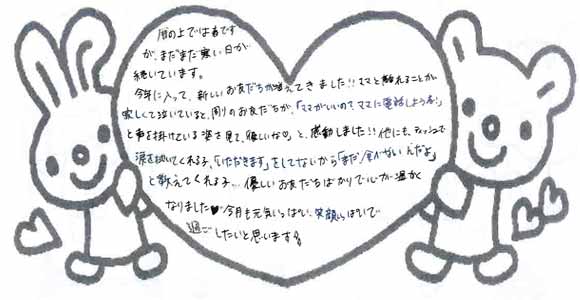 暦の上では春です
が、まだまだ寒い日が
続いています。
今年に入って、新しいお友だちが増えてきました!!ママと離れることが
寂しくて泣いていると、周りのお友だちが、「ママがいいの？ママに電話しようか？」
と声を掛けている姿を見て、優しいな♡と、感動しました!!他にも、ティッシュで
涙を拭いてくれる子、「いただきます」をしてないから「まだ食べないんだよ」
と教えてくれる子…優しいお友だちばかりで心が温かく
なりました♥今月も元気いっぱい、笑顔いっぱいで
過ごしたいと思います